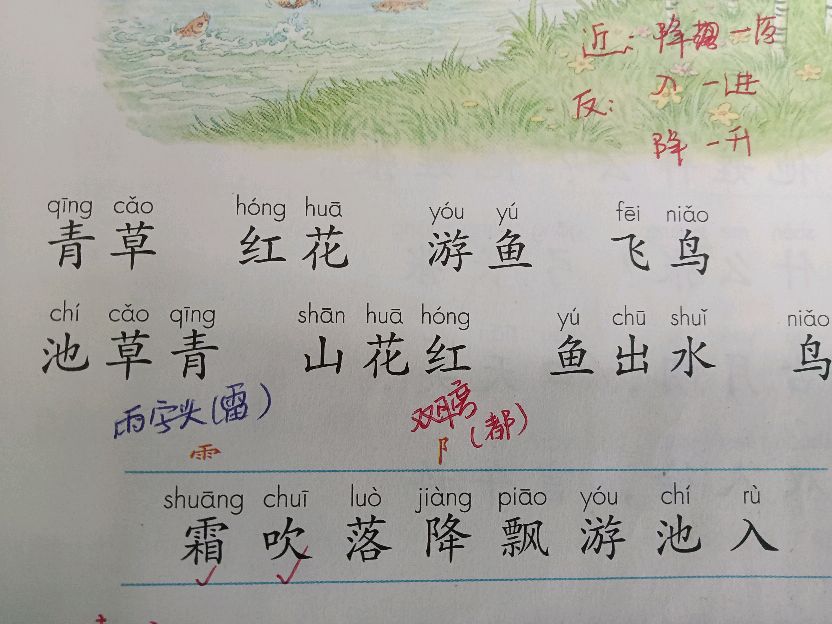 近：降落一
反： 入一进
降一升
qīng cǎo hóng huā yóu yú fēi niǎo
青草 红花 游鱼 飞鸟
chí cǎo qīng shān huā hóng yú chū shuǐ niǎo
池草青 山花红 鱼出水 鸟
雨字头(雷) 双耳旁(都)
⻗ 阝
shuāng chuī luò jiàng piāo yóu chí rù
霜 吹 落 降 飘 游 池 入